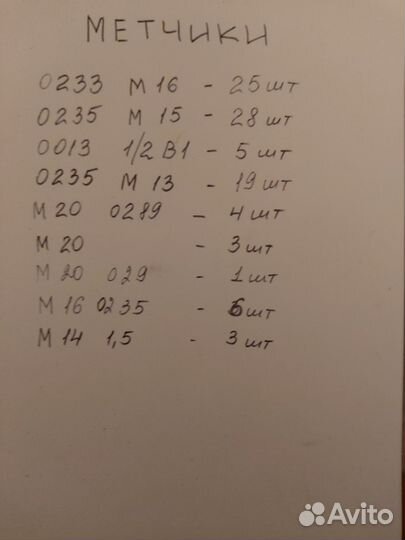 МЕТЧИКИ
0233 М 16 - 25 шт
0235 М 15 - 28 шт
0013 1/2 В1 - 5 шт
0235 М 13 - 19 шт
М 20 0289 - 4 шт
М 20 - 3 шт
М 20 029 - 1 шт
М 16 0235 - 6 шт
М 14 1,5 - 3 шт
Avito